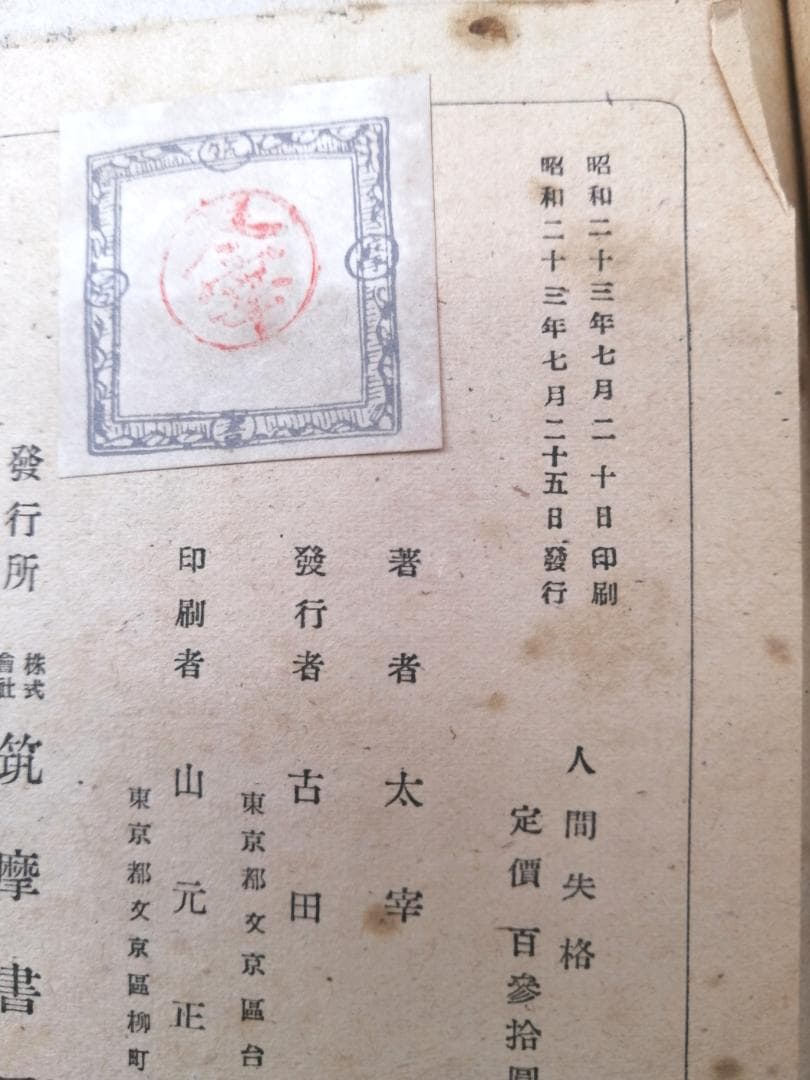 昭和二十三年七月二十日印刷
昭和二十三年七月二十五日發行
人間失格
定價百參拾圓
著者太宰
發行者古田
東京都文京區台
印刷者山元正
東京都文京區柳町
發行所
株式
會社
筑摩書
筑
摩
書